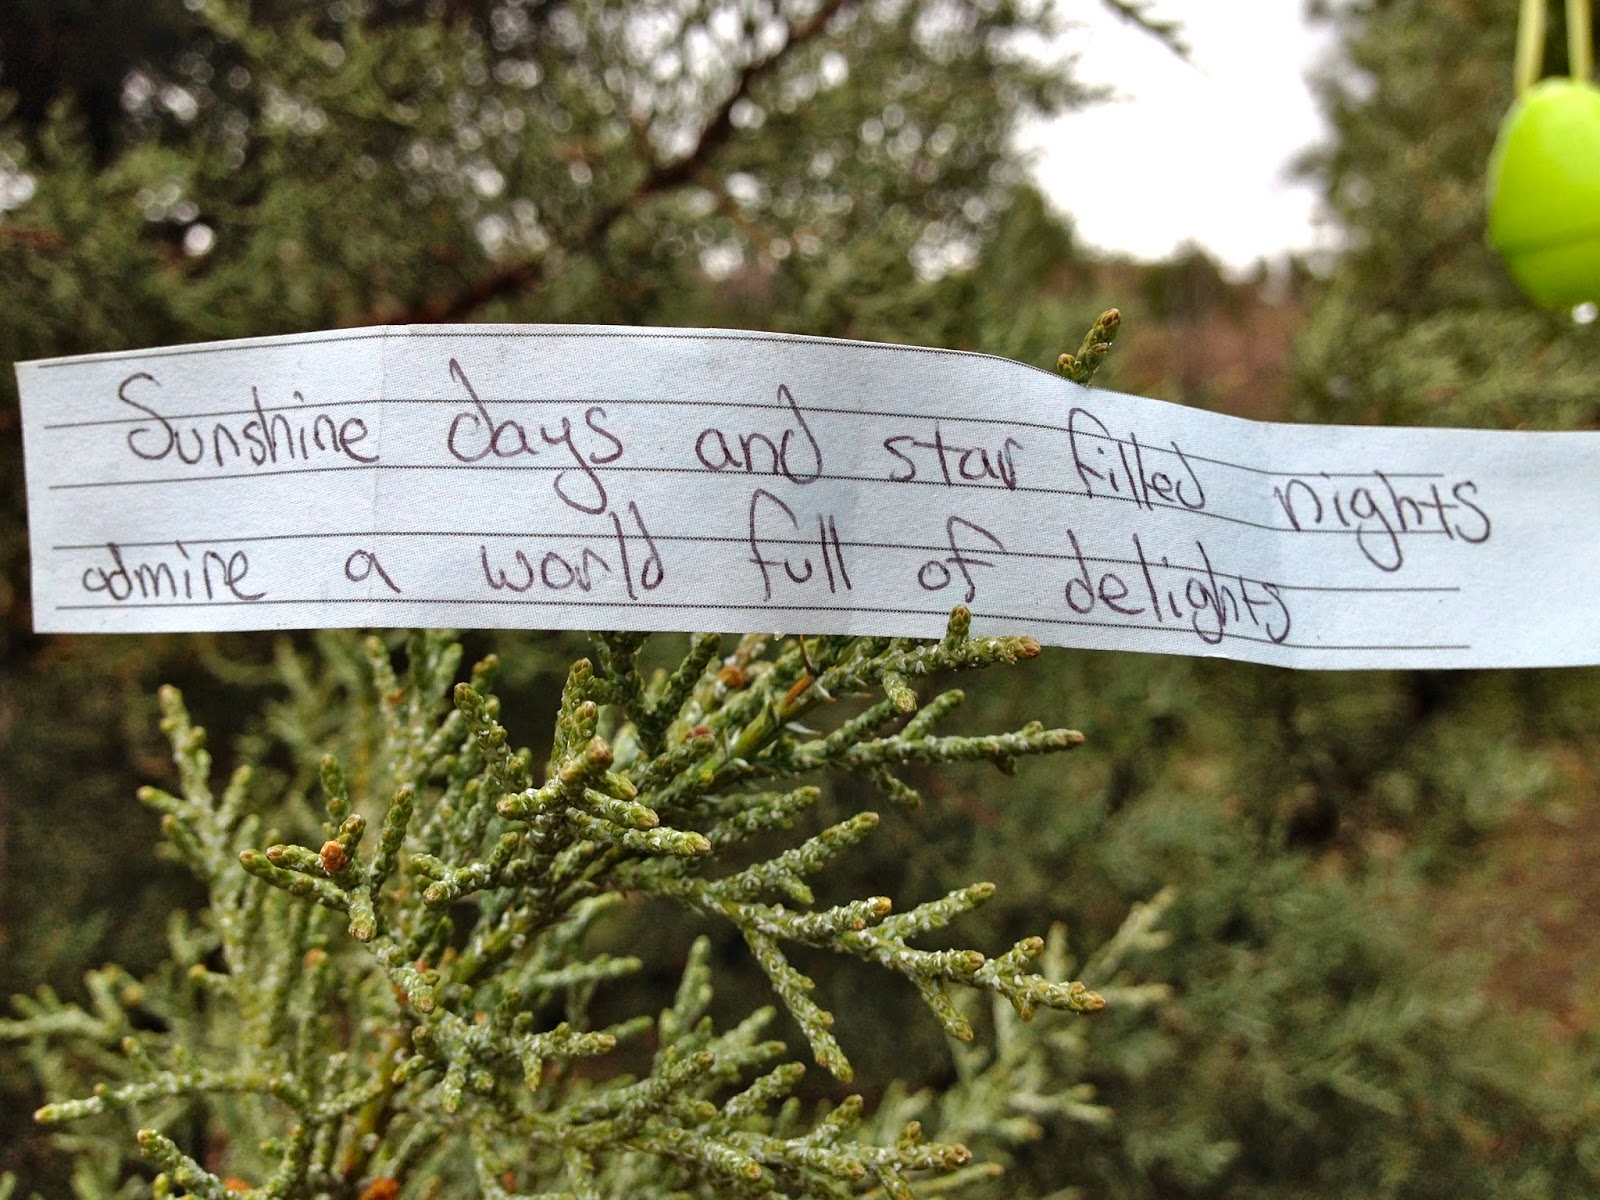 Sunshine days and star filled nights
admire a world full of delights